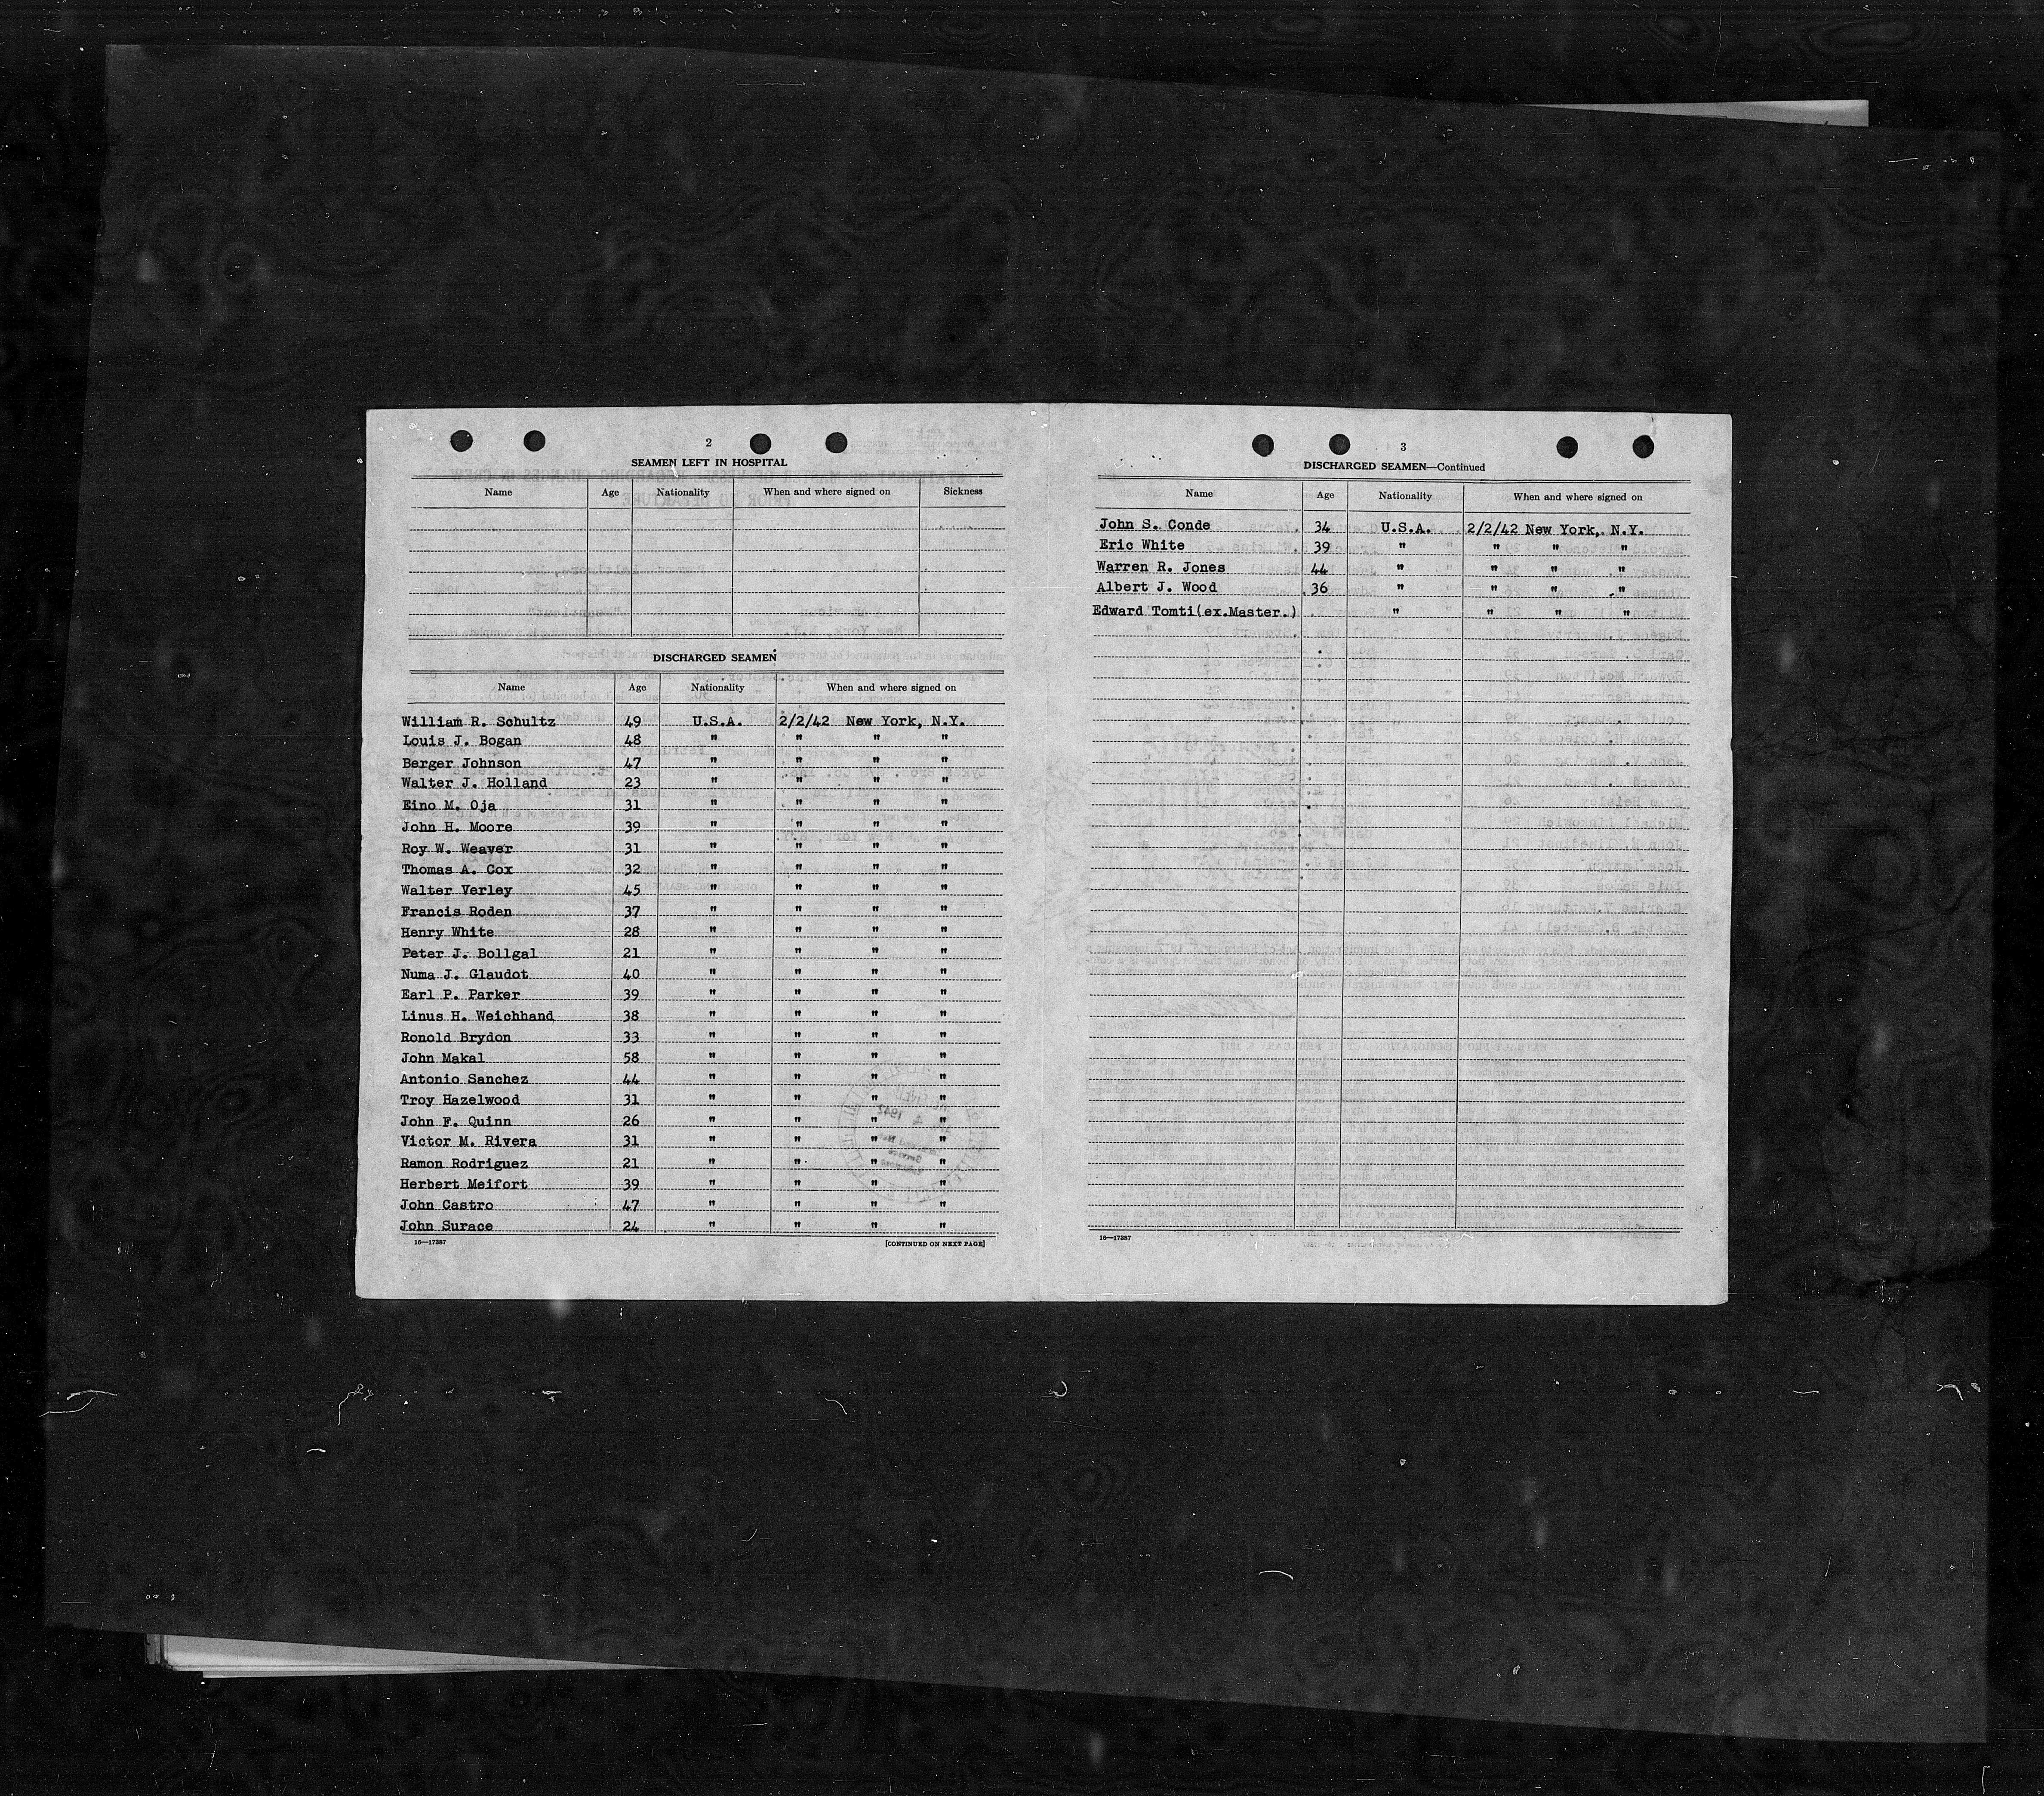 2
SEAMEN LEFT IN HOSPITAL
Name Age Nationality When and where signed on Sickness
DISCHARGED SEAMEN
Name Age Nationality When and where signed on
William R. Schultz 49 U.S.A. 2/2/42 New York, N.Y.
Louis J. Bogan 48 " " " "
Berger Johnson 47 " " " "
Walter J. Holland 23 " " " "
Eino M. Oja 31 " " " "
John H. Moore 39 " " " "
Roy W. Weaver 31 " " " "
Thomas A. Cox 32 " " " "
Walter Verley 45 " " " "
Francis Roden 37 " " " "
Henry White 28 " " " "
Peter J. Bollgal 21 " " " "
Numa J. Glaudot 40 " " " "
Earl P. Parker 39 " " " "
Linus H. Weichhand 38 " " " "
Ronold Brydon 33 " " " "
John Makal 58 " " " "
Antonio Sanchez 44 " " " "
Troy Hazelwood 31 " " " "
John F. Quinn 26 " " " "
Victor M. Rivera 31 " " " "
Ramon Rodriguez 21 " " " "
Herbert Meifort 39 " " " "
John Castro 47 " " " "
John Surace 24 " " " "
16—17387 [CONTINUED ON NEXT PAGE]
3
DISCHARGED SEAMEN—Continued
Name Age Nationality When and where signed on
John S. Conde 34 U.S.A. 2/2/42 New York, N.Y.
Eric White 39 " " " "
Warren R. Jones 44 " " " "
Albert J. Wood 36 " " " "
Edward Tomti(ex.Master.) " " " "
16—17387